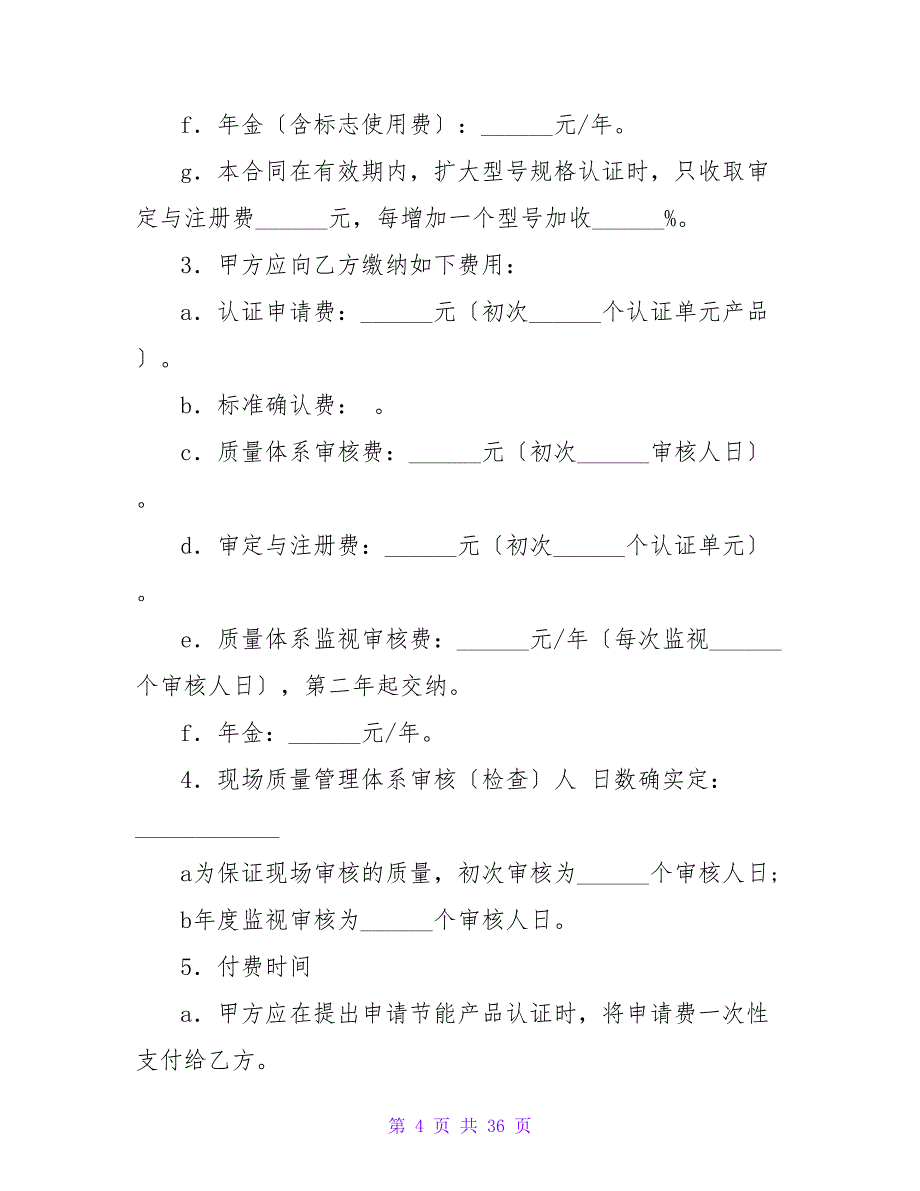 f．年金〔含标志使用费〕：______元/年。
g．本合同在有效期内，扩大型号规格认证时，只收取审
定与注册费______元，每增加一个型号加收______%。
3．甲方应向乙方缴纳如下费用：
a．认证申请费：______元〔初次______个认证单元产品
〕。
b．标准确认费： 。
c．质量体系审核费：______元〔初次______审核人日〕
。
d．审定与注册费：______元〔初次______个认证单元〕
。
e．质量体系监视审核费：______元/年〔每次监视______
个审核人日〕，第二年起交纳。
f．年金：______元/年。
4．现场质量管理体系审核〔检查〕人 日数确实定：
____________
a为保证现场审核的质量，初次审核为______个审核人日；
b年度监视审核为______个审核人日。
5．付费时间
a．甲方应在提出申请节能产品认证时，将申请费一次性
支付给乙方。
第 4 页 共 36 页